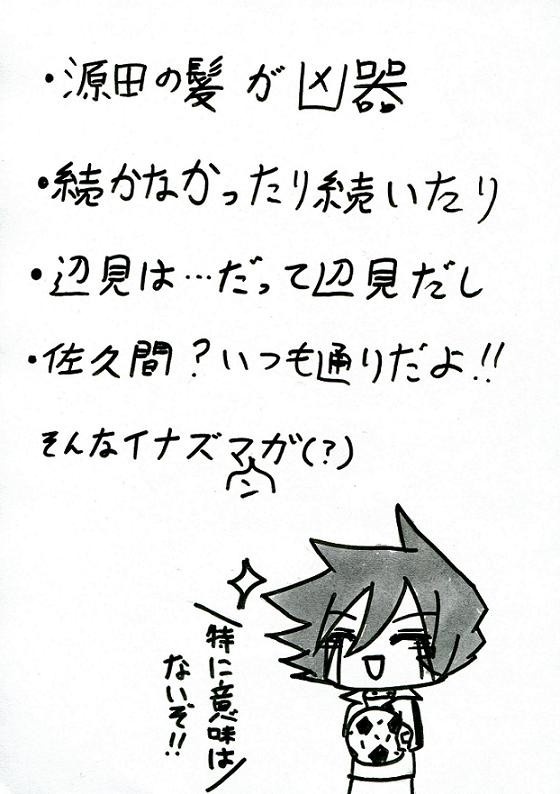 ・源田の髪が凶器
・続かなかったり続いたり
・辺見は…だって辺見だし
・佐久間？いつも通りだよ!!
そんなイナズマンガ(？)
特に意味は
ないぞ!!